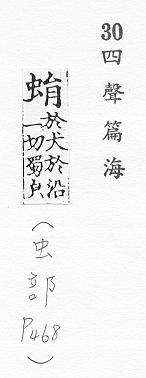 30 四聲篇海
蜎
於犬於沿
二切蜀皃
(虫部 P468)